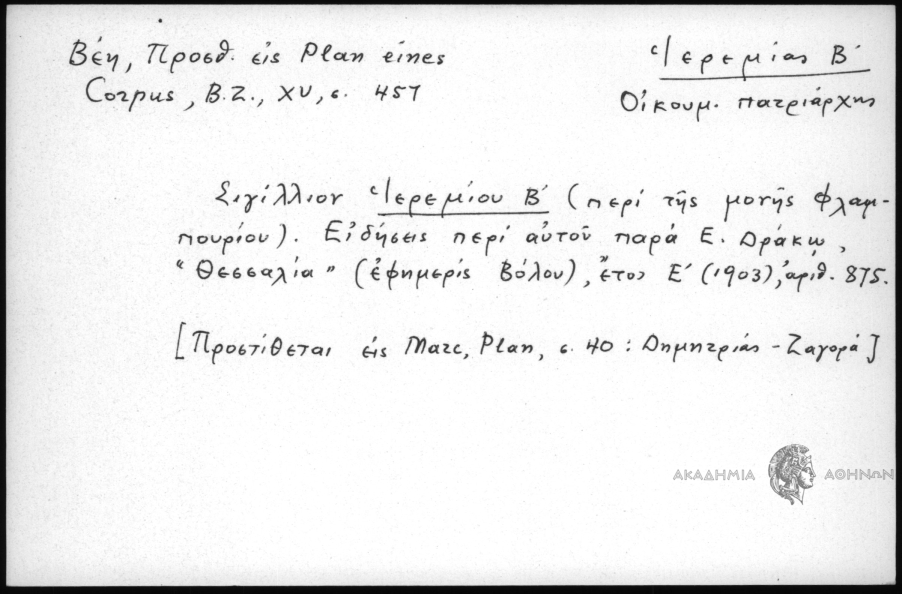 Βέη, Προσθ. εἰς Plan eines
Corpus, B.Z., XV, σ. 457
Ἱερεμίας Β΄
Οἰκουμ. πατριάρχης
Σιγίλλιον Ἱερεμίου Β΄ (περί τῆς μονῆς Φλαμ-
πουρίου). Εἰδήσεις περί αὐτοῦ παρά Ε. Δράκῳ,
"Θεσσαλία" (ἐφημερίς Βόλου), ἔτος Ε΄ (1903), ἀριθ. 875.
[Προστίθεται εἰς Marc, Plan, σ. 40 : Δημητριάς - Ζαγορά]
ΑΚΑΔΗΜΙΑ ΑΘΗΝΩΝ